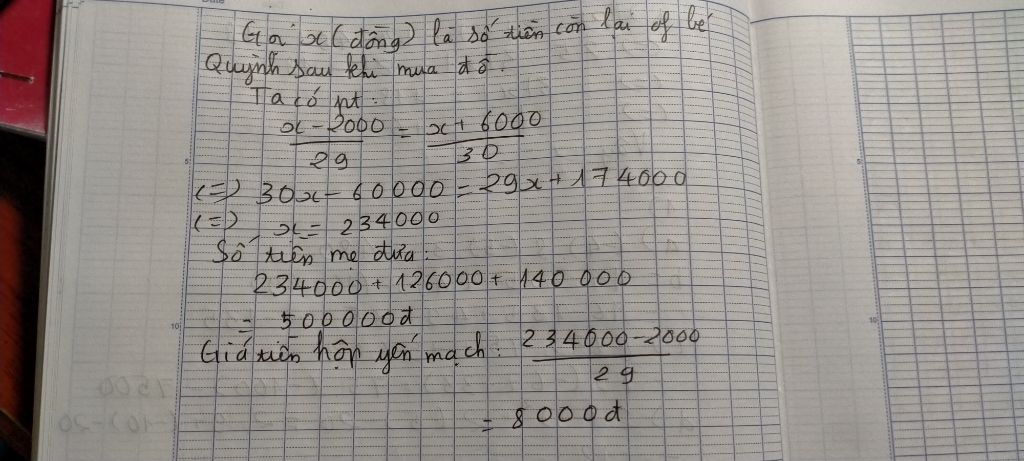 Gọi x (đồng) là số tiền còn lại of bé
Quỳnh sau khi mua đồ.
Ta có pt:
x - 2000 / 29 = x + 6000 / 30
(=) 30x - 60000 = 29x + 174000
(=) x = 234000
Số tiền mẹ đưa:
234000 + 126000 + 140 000
= 500000đ
Giá tiền hộp yến mạch: 234000 - 2000 / 29
= 8000đ